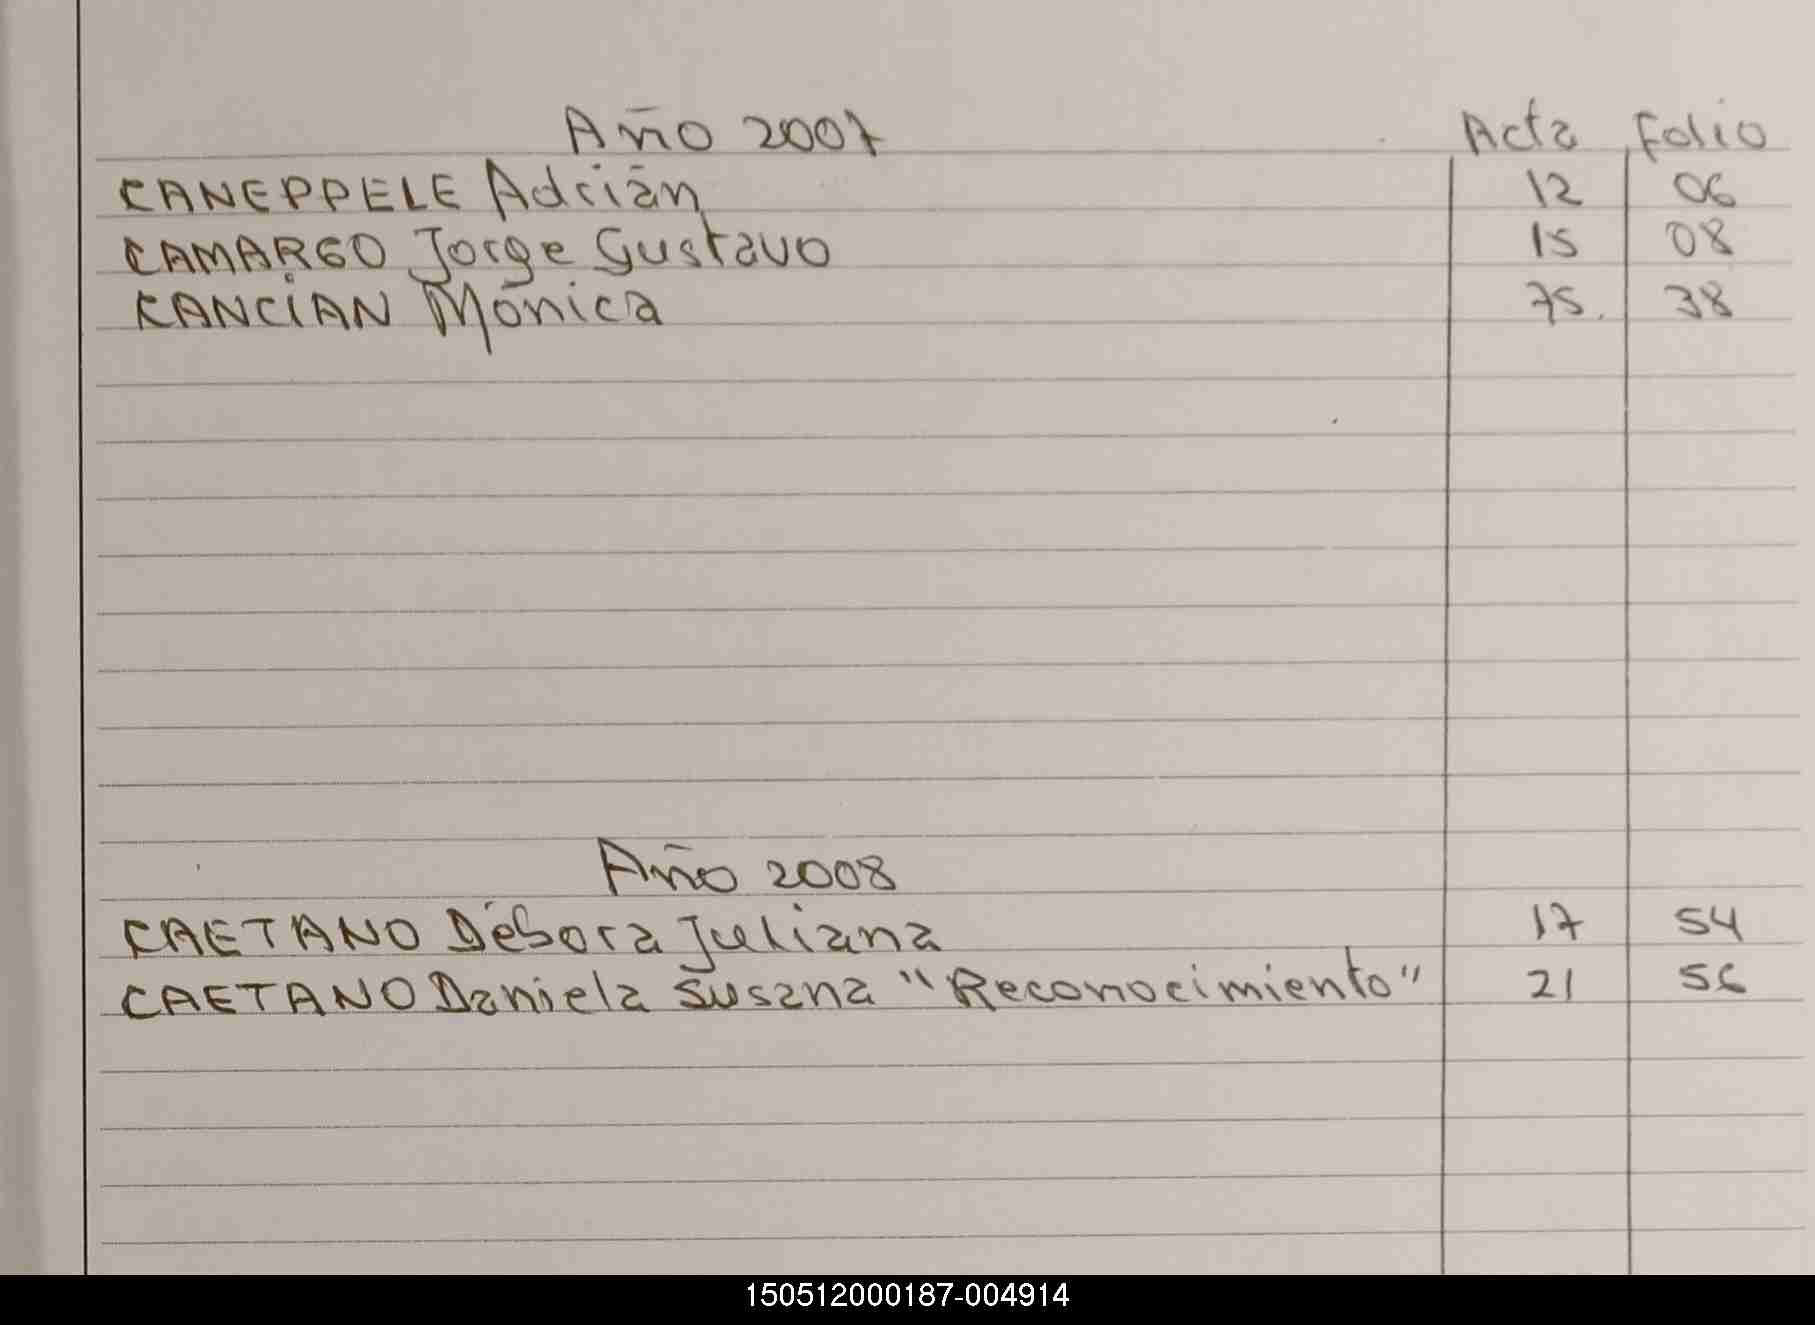 Año 2007 Acta Folio
CANEPPELE Adrián 12 06
CAMARGO Jorge Gustavo 15 08
CANCiAN Mónica 75. 38
Año 2008
CAETANO Débora Juliana 17 54
CAETANO Daniela Susana "Reconocimiento" 21 56
150512000187-004914